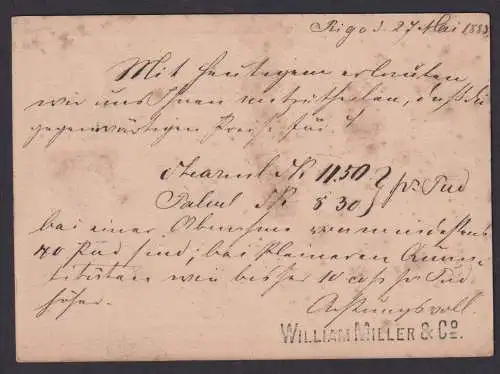 Riga d. 27 Mai 1883
Mit Heutigem erlauben
wir uns Ihnen mitzutheilen, daß die
gegenwärtigen Preise für
Stearnl SR. 11.50
Palml SR. 8 30 } pr. Pud
bei einer Abnahme von mindestens
40 Pud sind; bei kleineren Quan-
titäten wie bisher 10 cop pr Pud
höher.
Achtungsvoll.
WILLIAM MILLER & Co.